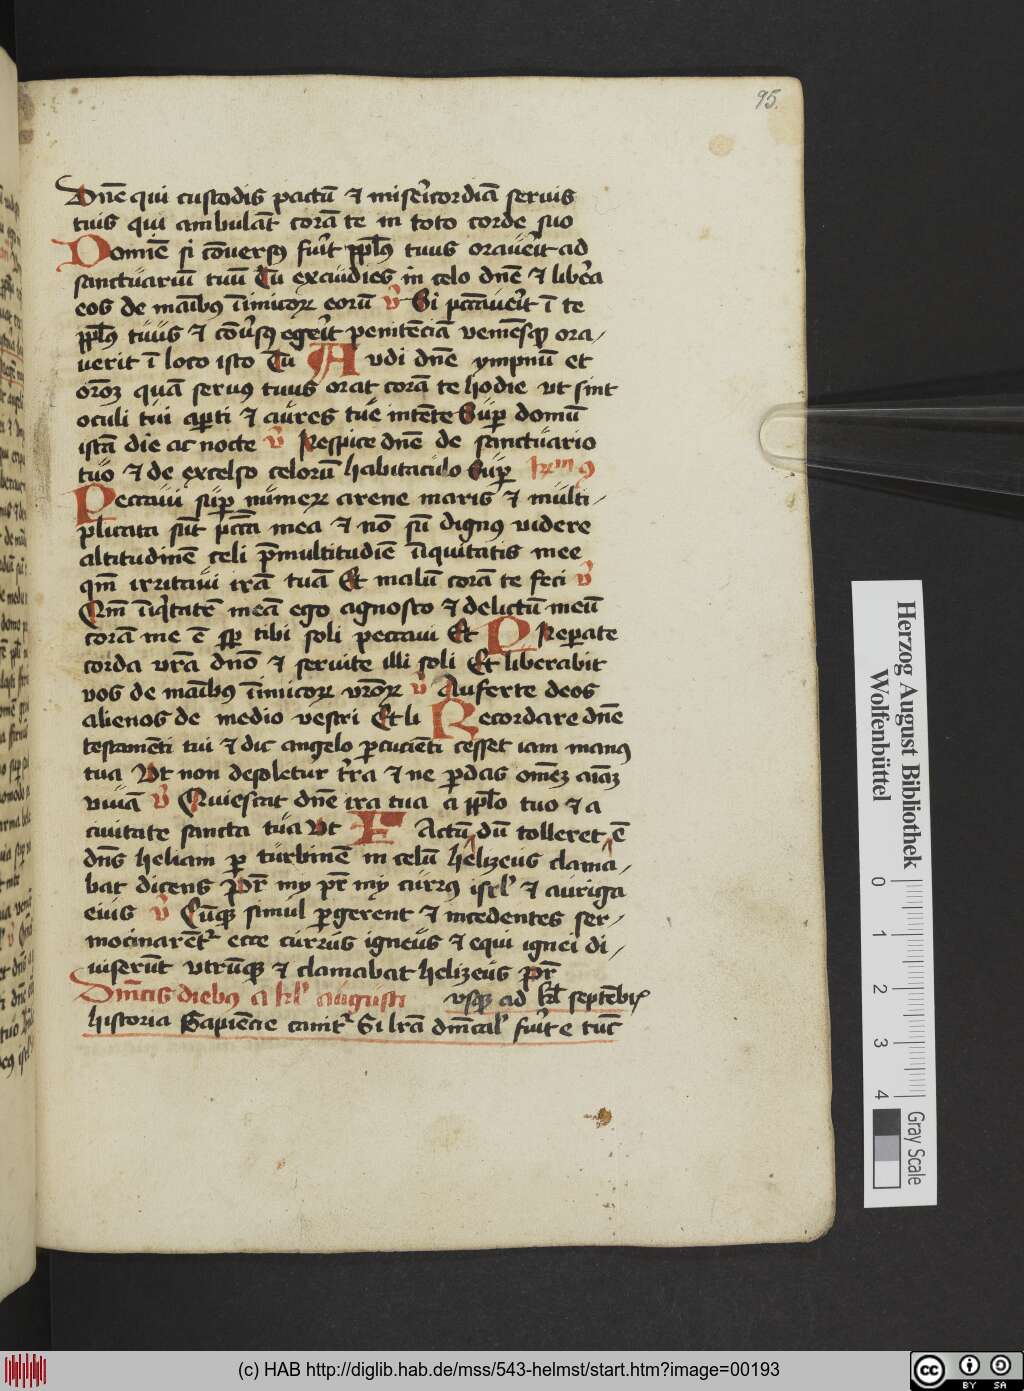 95.
Dn̄e qui custodis pactū ⁊ mis̄ericordiā servis
tuis qui ambulāt corā te in toto corde suo
Domīe si cōversꝰ fūit ppl̄s tuus oravēit ad
sanctuariū tuū Tu exaudies in celo dn̄e ⁊ libēa
eos de manibꝰ īimicoꝝ eorū v̄ Si pctāvēit ī te
ppl̄s tuus ⁊ cōvsꝰ egeīt penitēciā veniēsqꝫ ora/
verit ī loco isto Tu Audi dn̄e ympnū et
orōꝫ quā servꝰ tuus orat corā te hodie vt sint
oculi tui apti ⁊ aures tue intēte Sup domū
istā die ac nocte v̄ Respice dn̄e de sanctuario
tuo ⁊ de excelso celorū habitaculo Sup
Peccavi sup numeꝝ arene maris ⁊ multi/
plicata sūt pctā mea ⁊ nō sū dignꝰ videre
altitudinē celi p̄ multitudīe īiquitatis mee
qm̄ irritavi irā tuā Et malū corā te feci v̄
Qm̄ īiqitatē meā ego agnosco ⁊ delictū meū
corā me ē sp tibi soli peccavi Et P Preparate
corda vrā dnō ⁊ servite illi soli Et liberabit
vos de manibꝰ īimicoꝝ vrōꝝ v̄ Auferte deos
alienos de medio vestri Et li Recordare dn̄e
testamēti tui ⁊ dic angelo pcuciēti cesset iam manꝰ
tua Vt non desoletur trā ⁊ ne pdas om̄eꝫ aīaꝫ
vivā v̄ Quiescat dn̄e ira tua a pplō tuo ⁊ a
civitate sancta tua Vt Factū dū tolleret ē
dn̄s heliam p turbinē in celū helizeus clamā/
bat dicens Pr̄ my pr̄ my currꝰ isrl̄ ⁊ auriga
eius v̄ Cūqꝫ simul pgerent ⁊ incedentes ser/
mocinarētr ecce currus igneus ⁊ equi ignei di/
viserūt vtrūqꝫ ⁊ clamabat helizeus pr̄
Dn̄icis diebꝰ a kl̄ augusti vsqꝫ ad kl̄ septēbꝝ
historia Sapiēcie canitr Si lrā dn̄ical̄ fūit e tūc
Herzog August Bibliothek
Wolfenbüttel
0 1 2 3 4
Gray Scale
(c) HAB http://diglib.hab.de/mss/543-helmst/start.htm?image=00193
cc BY SA